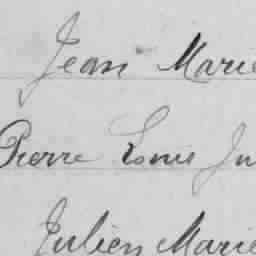 Jean Marie
Pierre Louis Ju
Julien Marie